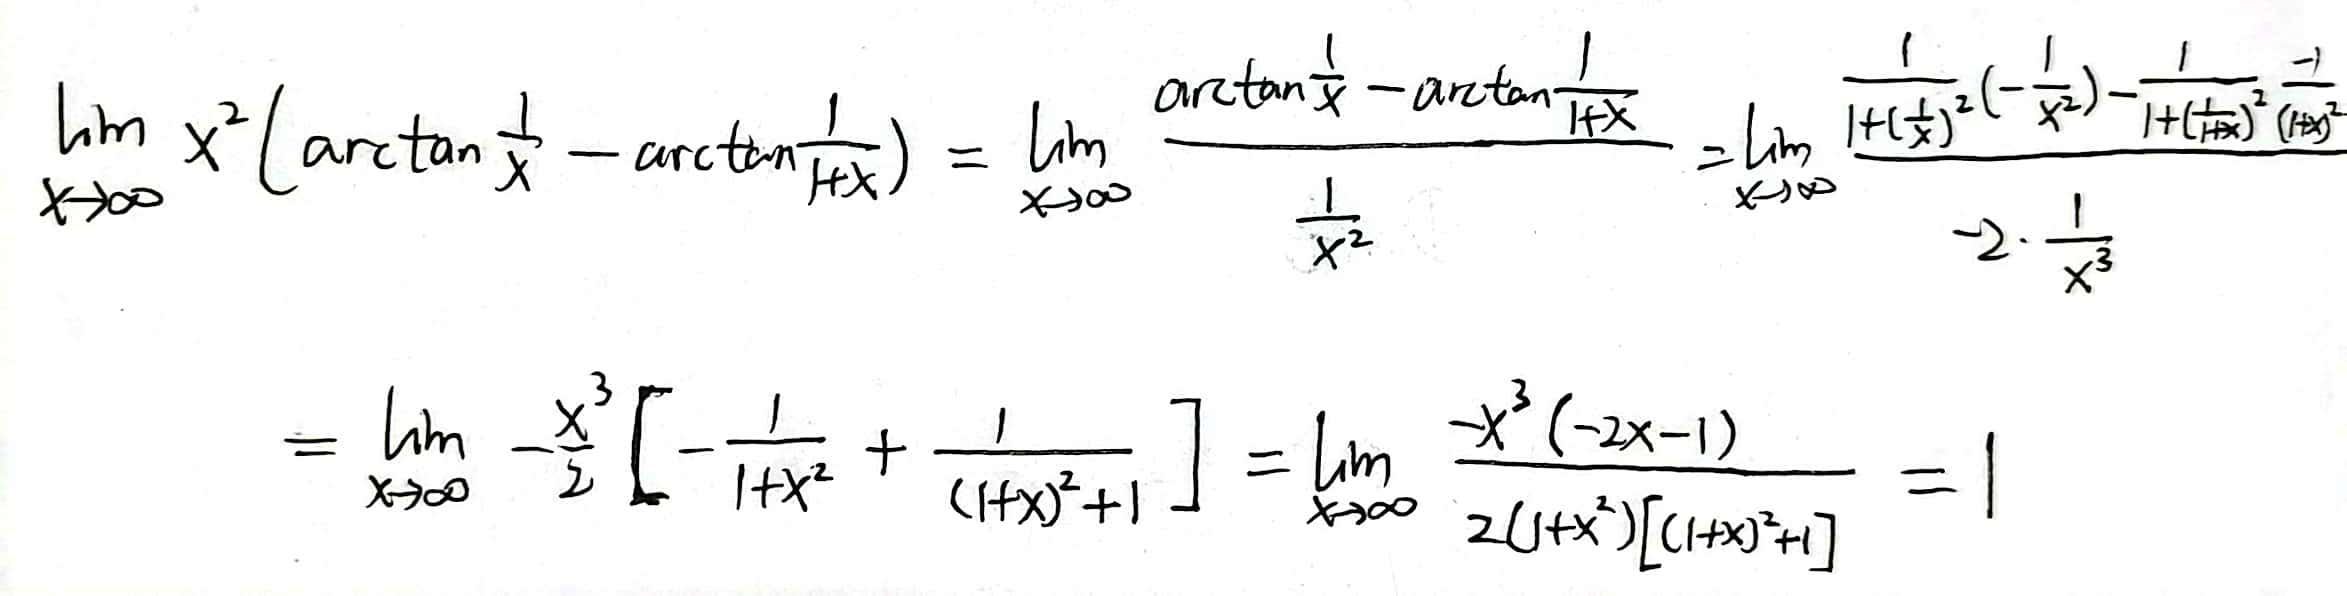 lim_{x→∞} x²(arctan 1/x − arctan 1/(1+x)) = lim_{x→∞} (arctan 1/x − arctan 1/(1+x)) / (1/x²) = lim_{x→∞} (1/(1+(1/x)²) (−1/x²) − 1/(1+(1/(1+x))²) · −1/(1+x)²) / (−2 · 1/x³)
= lim_{x→∞} −x³/2 [−1/(1+x²) + 1/((1+x)²+1)] = lim_{x→∞} −x³(−2x−1) / (2(1+x²)[(1+x)²+1]) = 1